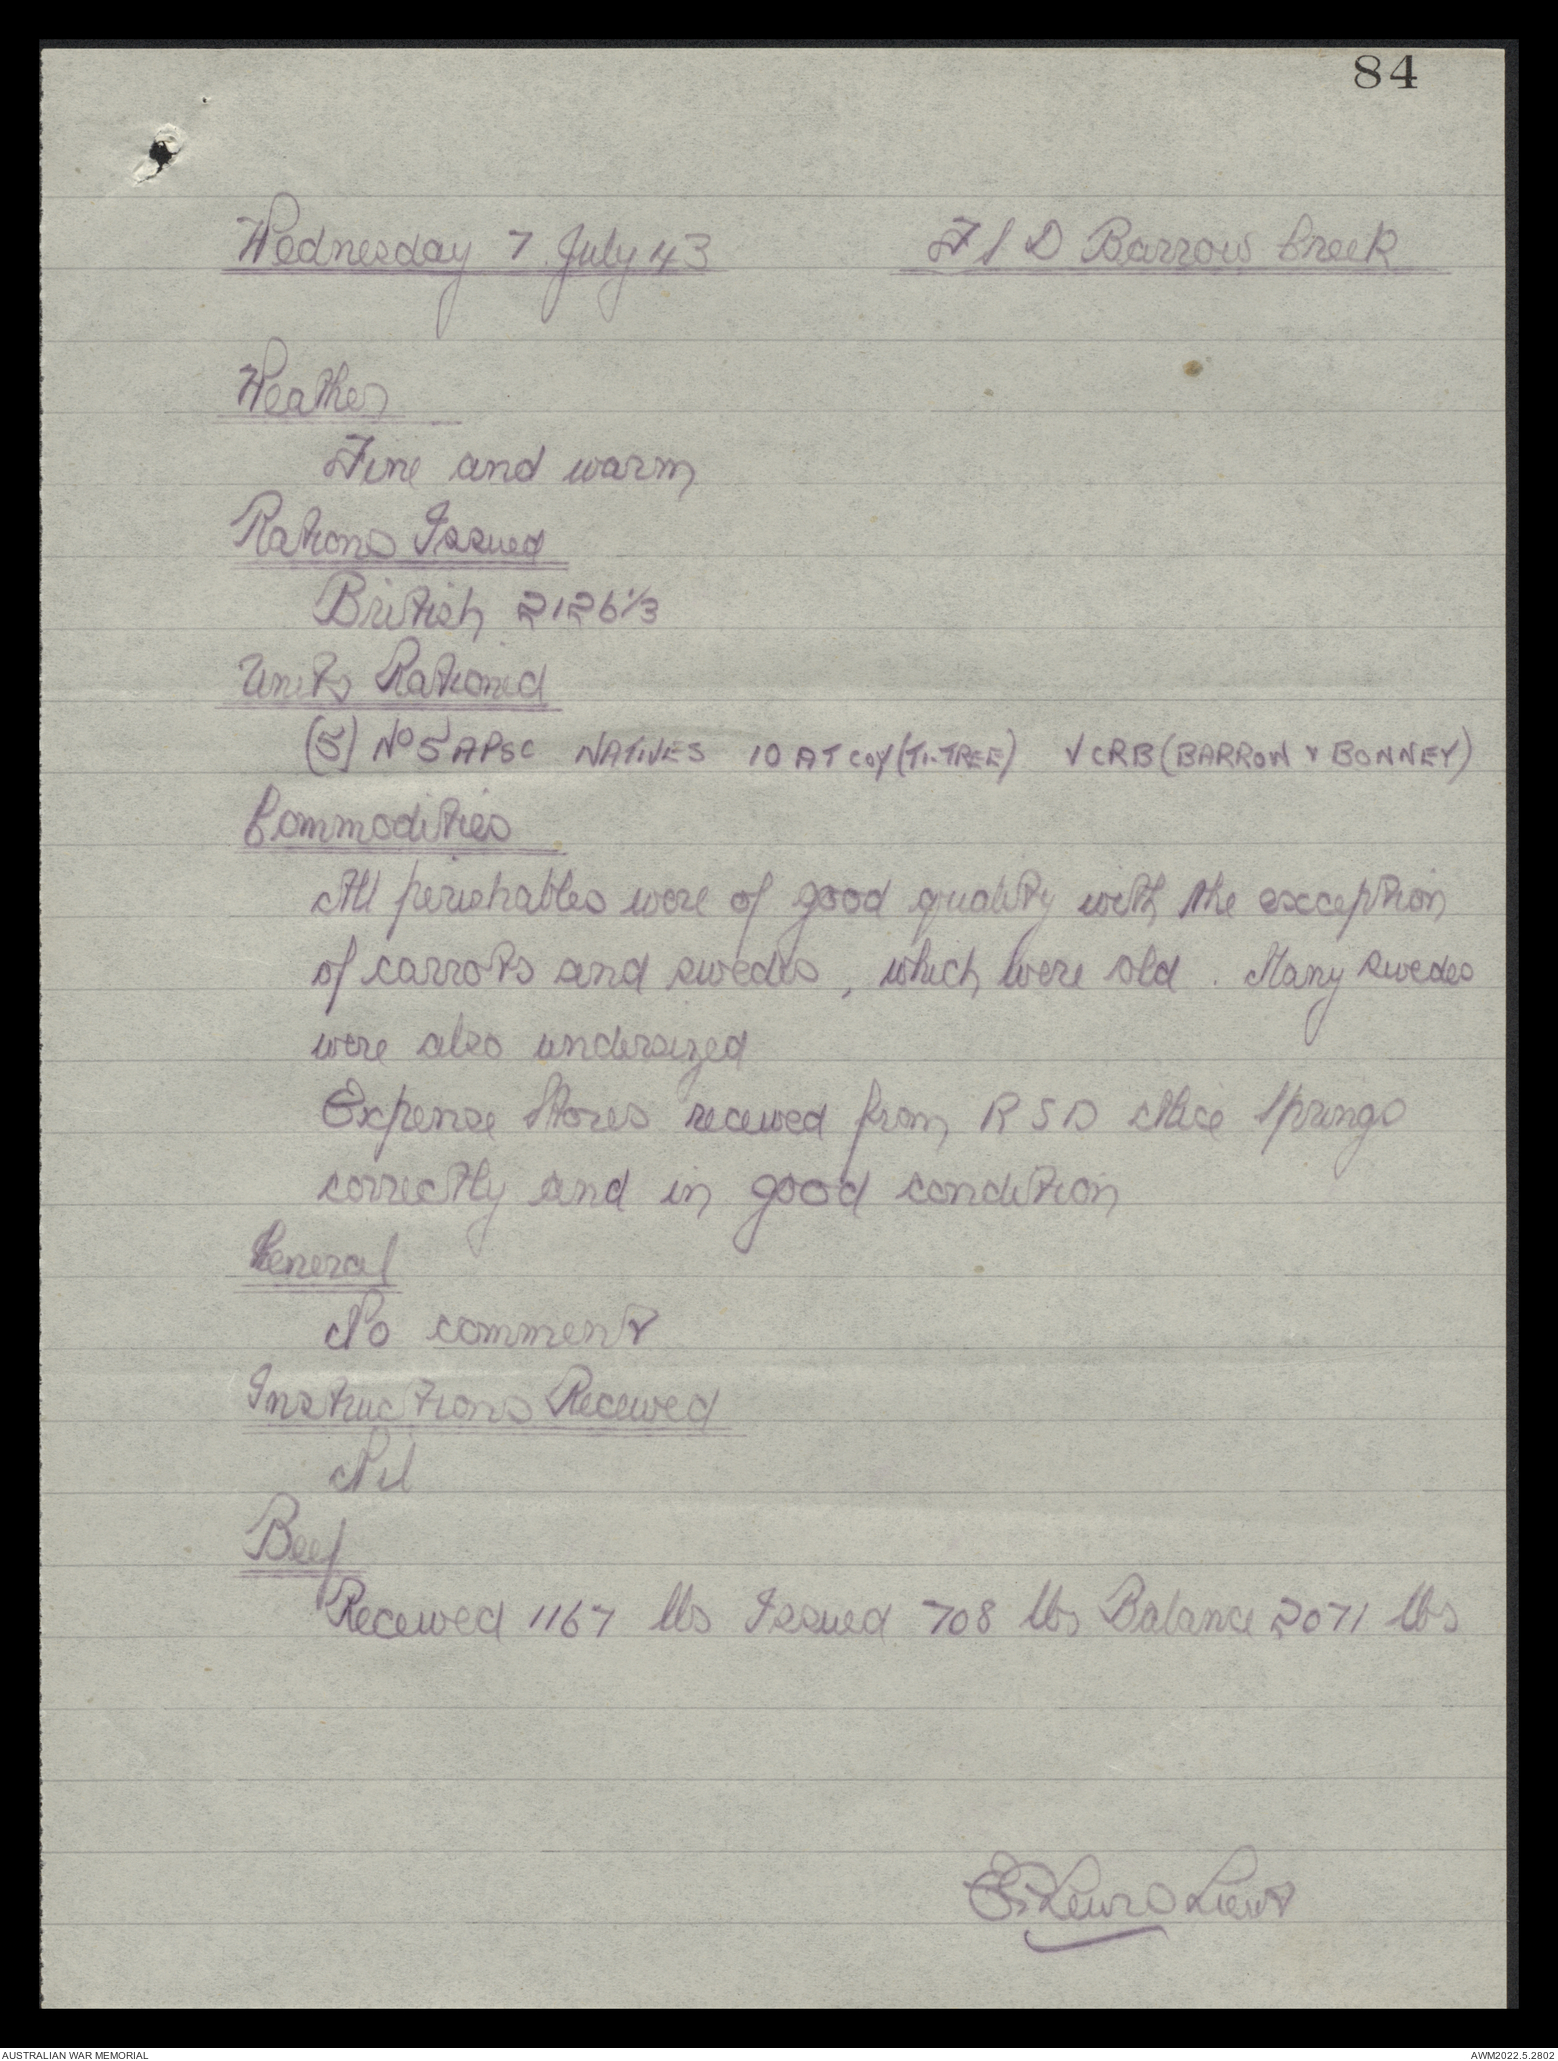 84
Wednesday 7 July 43 F S D Barrow Creek
Weather
Fine and warm
Rations Issued
British 2126 1/3
Units Rationed
(5) No 5 APSC NATIVES 10 AT Coy (TI-TREE) VCRB (BARROW & BONNEY)
Commodities
All perishables were of good quality with the exception
of carrots and swedes, which were old. Many swedes
were also undersized
Expense Stores received from R S D Alice Springs
correctly and in good condition
General
No comment
Instructions Received
Nil
Beef
Received 1167 lbs Issued 708 lbs Balance 2071 lbs
Lewis Lieut
AUSTRALIAN WAR MEMORIAL AWM2022.5.2802